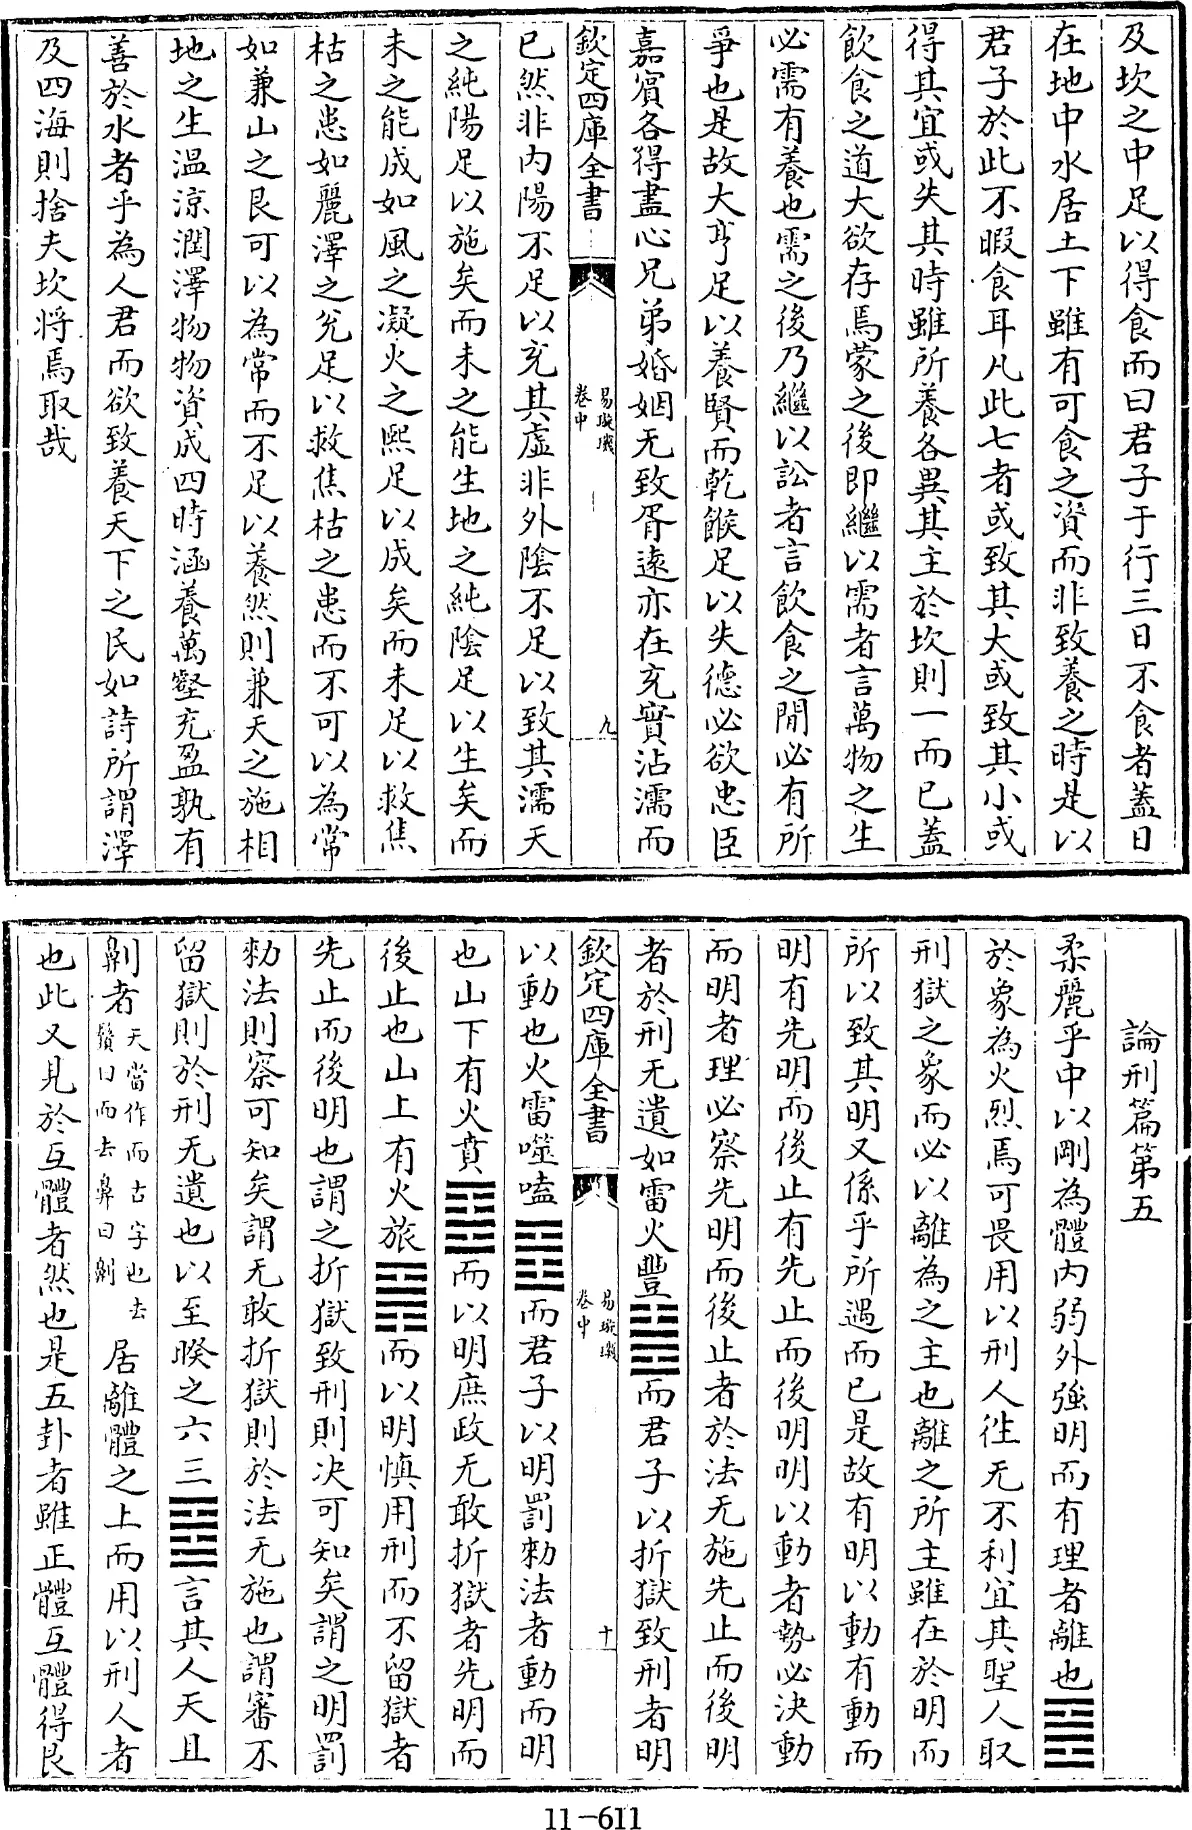 及坎之中足以得食而曰君子于行三日不食者蓋日
在地中水居土下雖有可食之資而非致養之時是以
君子於此不暇食耳凡此七者或致其大或致其小或
得其宜或失其時雖所養各異其主於坎則一而已蓋
飲食之道大欲存焉蒙之後即繼以需者言萬物之生
必需有養也需之後乃繼以訟者言飲食之間必有所
爭也是故大亨足以養賢而乾餱足以失德必欲忠臣
嘉賓各得盡心兄弟婚姻无致胥遠亦在充實沾濡而
欽定四庫全書
易璇璣
卷中
九
已然非内陽不足以充其虛非外陰不足以致其濡天
之純陽足以施矣而未之能生地之純陰足以生矣而
未之能成如風之凝火之熙足以成矣而未足以救焦
枯之患如麗澤之兊足以救焦枯之患而不可以為常
如兼山之艮可以為常而不足以養然則兼天之施相
地之生温涼潤澤物物資成四時涵養萬壑充盈孰有
善於水者乎為人君而欲致養天下之民如詩所謂澤
及四海則捨夫坎将焉取哉
論刑篇第五
柔麗乎中以剛為體内弱外強明而有理者離也䷝
於象為火烈焉可畏用以刑人徃无不利宜其聖人取
刑獄之象而必以離為之主也離之所主雖在於明而
所以致其明又係乎所遇而已是故有明以動有動而
明有先明而後止有先止而後明明以動者勢必決動
而明者理必察先明而後止者於法无施先止而後明
者於刑无遺如雷火豐䷶而君子以折獄致刑者明
欽定四庫全書
易璇璣
卷中
十
以動也火雷噬嗑䷔而君子以明罰勑法者動而明
也山下有火賁䷕而以明庶政无敢折獄者先明而
後止也山上有火旅䷷而以明慎用刑而不留獄者
先止而後明也謂之折獄致刑則决可知矣謂之明罰
勑法則察可知矣謂无敢折獄則於法无施也謂審不
留獄則於刑无遺也以至暌之六三䷥言其人天且
劓者天當作而古字也去鬚曰而去鼻曰劓居離體之上而用以刑人者
也此又見於互體者然也是五卦者雖正體互體得艮
11-611